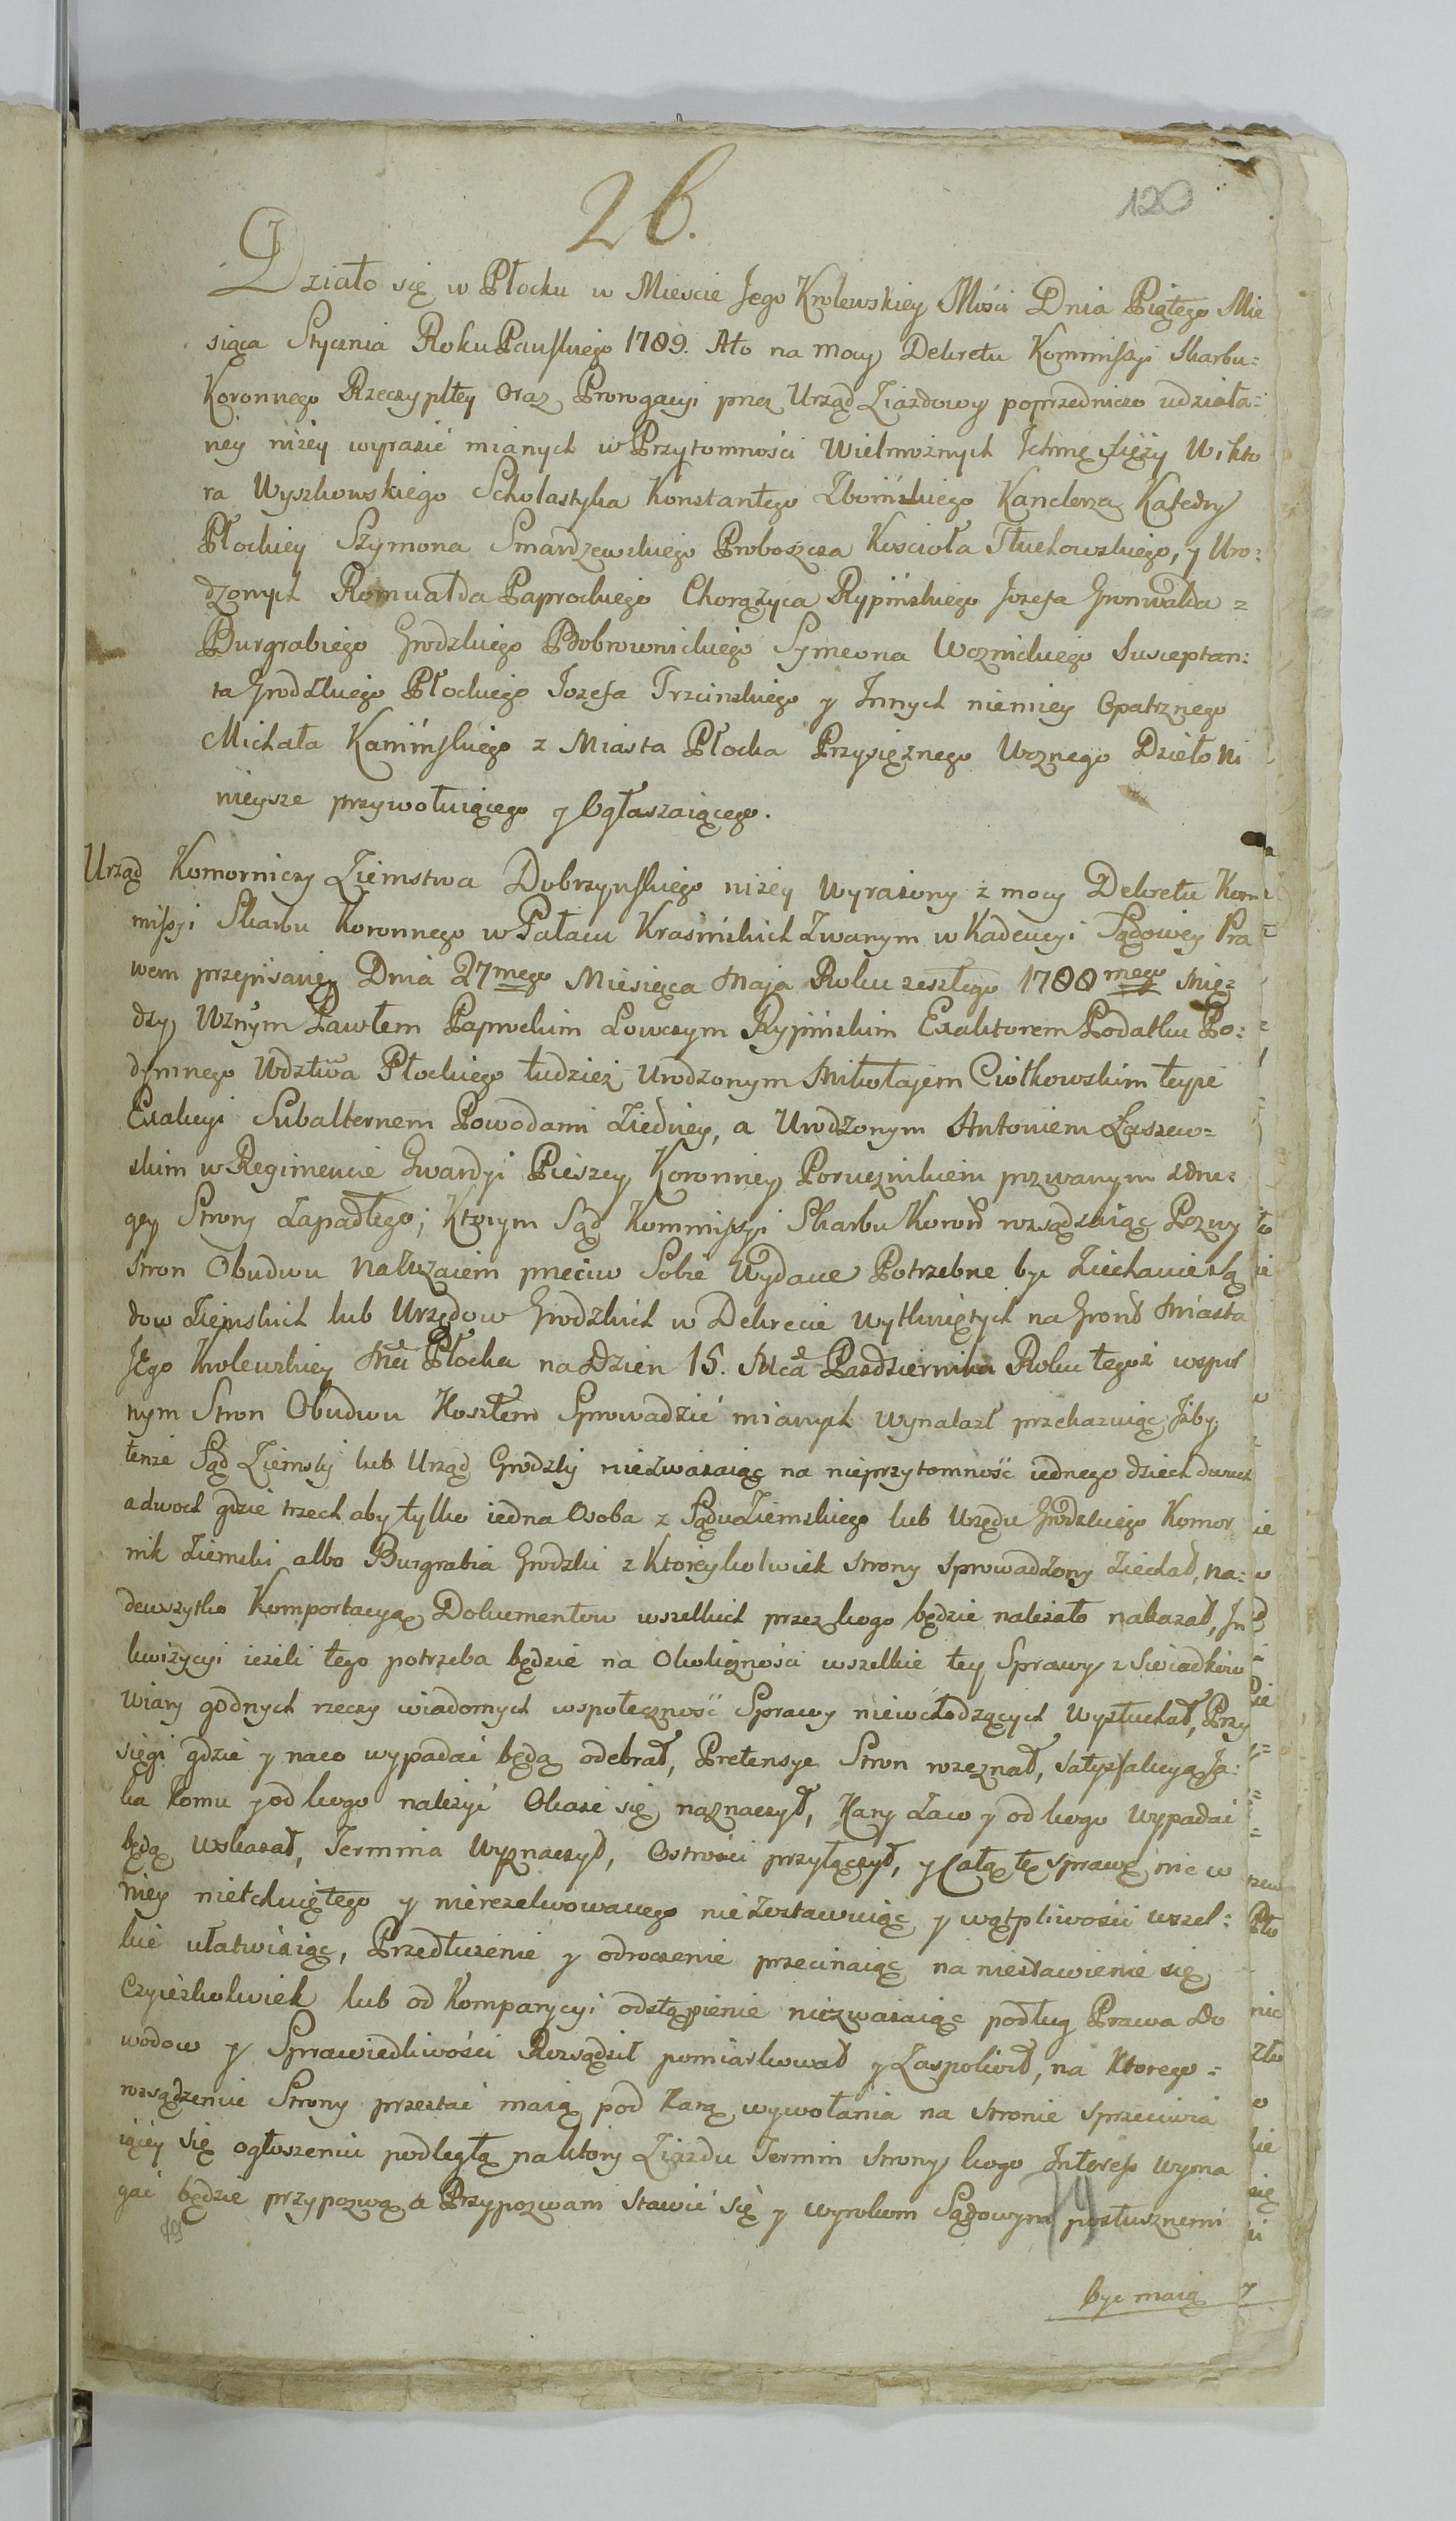 26.
120
Działo się w Płocku w Mieście Jego Krolewskiey Mości Dnia Piątego Mie
siąca Stycznia Roku Pańskiego 1789. Ato na mocy Dekretu Kommissyi Skarbu=
Koronnego Rzeczypltey oraz Prorogacyi przez Urząd Ziazdowy poprzedniczo udziela=
ney niżey wyrazić mianych w Przytomności Wielmożnych Ichmć Xięży Wikto
ra Wyszkowskiego Scholastyka Konstantego Zboińskiego Kanclerza Katedry
Płockiey Szymona Smardzewskiego Proboszcza Kościoła Tłuchowskiego, y Uro=
dzonych Romualda Paprockiego Chorążyca Rypińskiego Jozefa Gronwalda =
Burgrabiego Grodzkiego Bobrownickiego Symeona Woznickiego Susceptan=
ta Grodzkiego Płockiego Jozefa Trzcinskiego y Innych niemiey Opatrznego
Michała Kamińskiego z Miasta Płocka Przysiężnego Woznego Dzieło ni
nieysze przywołuiącego y Ogłaszaiącego.
Urząd Komorniczy Ziemstwa Dobrzynskiego niżey Wyrażony z mocy Dekretu Kom
missyi Skarbu Koronnego w Pałacu Krasińskich Zwanym w Kadencyi Sądowey Pra
wem przepisaney Dnia 27mego Miesiąca Maja Roku zeszłego 1788mego Mię=
dzy Wznym Pawłem Paprockim Łowczym Rypińskim Exaktorem Podatku Po=
dymnego Wdztwa Płockiego tudzież Urodzonym Mikołajem Ciołkowskim teyże
Exakcyi Subalternem Powodami Ziedney, a Urodzonym Antoniem Łaszew=
skim w Regimencie Gwardyi Pieszey Koronney Porucznikiem pozwanym zdru=
giey Strony Zapadłego; Ktorym Sąd Kommissyi Skarbu Koron rozsądzaiąc Pozwy
stron Obudwu Nawzaiem przeciw Sobie Wydane Potrzebne byc Ziechanie Są
dow Ziemskich lub Urzędow Grodzkich w Dekrecie wytkniętych na Gront Miasta
Jego Krolewskiey Mci Płocka na Dzien 15. Mca Pazdziernika Roku tegoż wspol
nym Stron Obudwu Kosztem Sprowadzić mianych wynalazł przekazuiąc Iżby
tenże Sąd Ziemski lub Urząd Grodzki niezważaiąc na nieprzytomność iednego dziech dwoch
adwoch gdzie trzech aby tylko iedna Osoba z Sądu Ziemskiego lub Urzędu Grodzkiego Komor
nik Ziemski albo Burgrabia Grodzki z Ktoreykolwiek strony sprowadzony Ziechał, na=
dewszytko Komportacyą Dokumentow wszelkich przez kogo będzie należało nakazał, In
kwizycyi ieżeli tego potrzeba będzie na Okoliczności wszelkie tey Sprawy z Swiadkow
Wiary godnych rzeczy wiadomych wspołeczność Sprawy niewchodzących Wysłuchał, Przy
sięgi gdzie y naco wypadać będą odebrał, Pretensye Stron rozeznał, Satysfakcyą Ja=
ka Komu y od kogo należyć Okaże się naznaczył, Kary Zaco y od kogo Wypadać
będą Wskazał, Termina Wyznaczył, Ostrości przyłączył, y Całą tę Sprawę nic w
niey nietchniętego y nierezolwowanego niezostawuiąc y wątpliwości wszel=
kie ułatwiaiąc, Przedłużenie y odroczenie przecinaiąc na niestawienie się
Czyieżkolwiek lub od Komparycyi odstąpienie niezważaiąc podług Prawa Do
wodow y Sprawiedliwości Rozsądził pomiarkował y Zaspokoił, na Ktorego =
rozsądzenie Strony przestać maią pod Karą wywołania na stronie sprzeciwia
iącey się ogłoszeniu podległą na Ktory Ziazdu Termin strony kogo Interess wyma
gać będzie przypozwą a Przypozwani stawić się y wyrokom Sądowym posłusznemi
byc maią